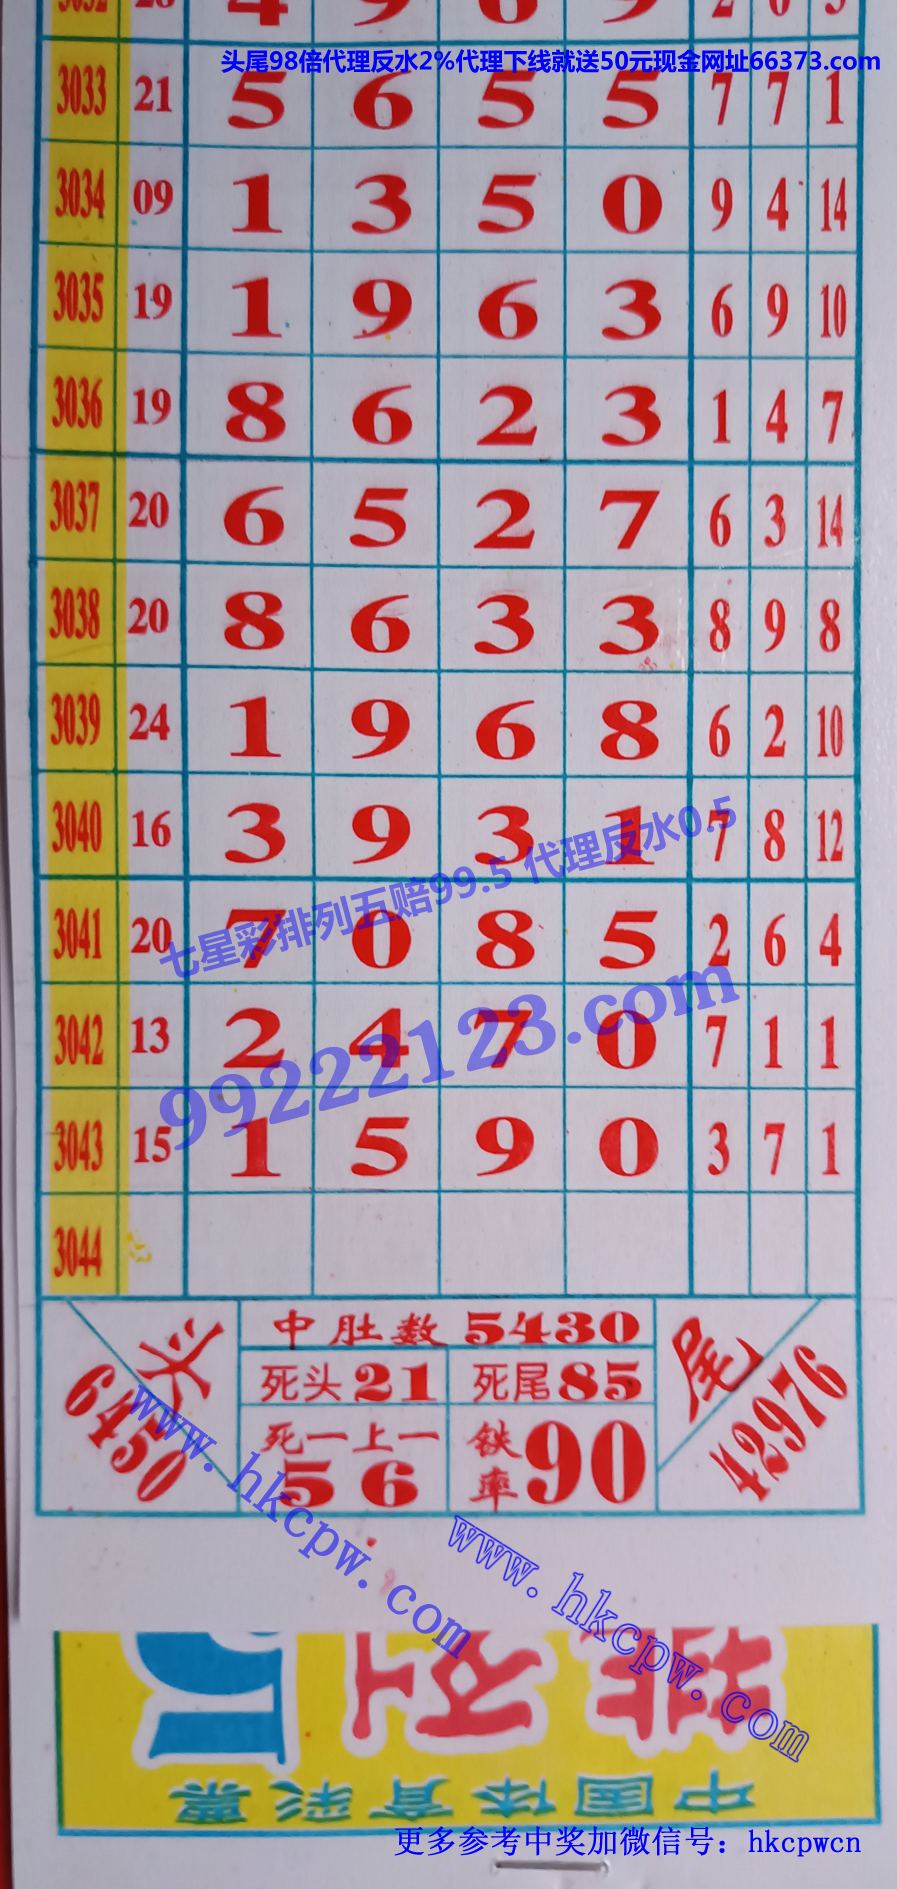 3032 28 4 9 6 9 2 6 3
头尾98倍代理反水2%代理下线就送50元现金网址66373.com
3033 21 5 6 5 5 7 7 1
3034 09 1 3 5 0 9 4 14
3035 19 1 9 6 3 6 9 10
3036 19 8 6 2 3 1 4 7
3037 20 6 5 2 7 6 3 14
3038 20 8 6 3 3 8 9 8
3039 24 1 9 6 8 6 2 10
3040 16 3 9 3 1 7 8 12
七星彩排列五赔99.5 代理反水0.5
3041 20 7 0 8 5 2 6 4
99222123.com
3042 13 2 4 7 0 7 1 1
3043 15 1 5 9 0 3 7 1
3044
头
6450
中肚数 5430
死头21
死尾85
死一上一
56
铁率90
尾
42976
www.hkcpw.com
www.hkcpw.com
排列
中国体育彩票
更多参考中奖加微信号：hkcpwcn